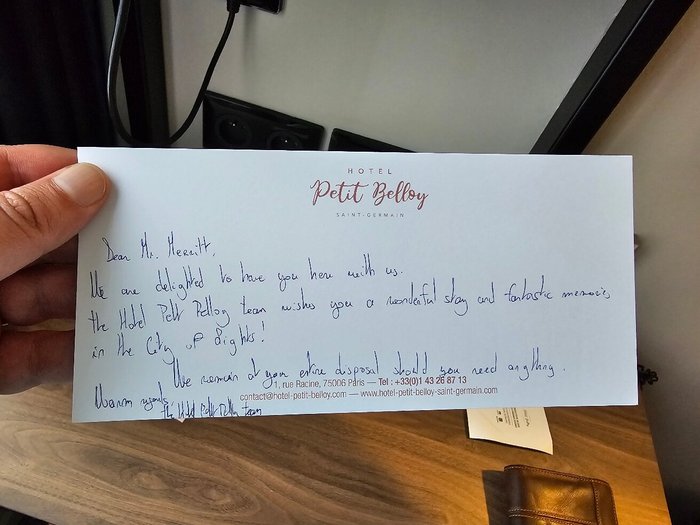 HOTEL
Petit Belloy
SAINT-GERMAIN
Dear Mr. Merritt,
We are delighted to have you here with us.
The Hotel Petit Belloy team wishes you a wonderful stay and fantastic memories
in the City of Lights!
We remain at your entire disposal should you need anything.
1, rue Racine, 75006 Paris — Tel : +33(0)1 43 26 87 13
contact@hotel-petit-belloy.com — www.hotel-petit-belloy-saint-germain.com
Warm regards,
The Hotel Petit Belloy team